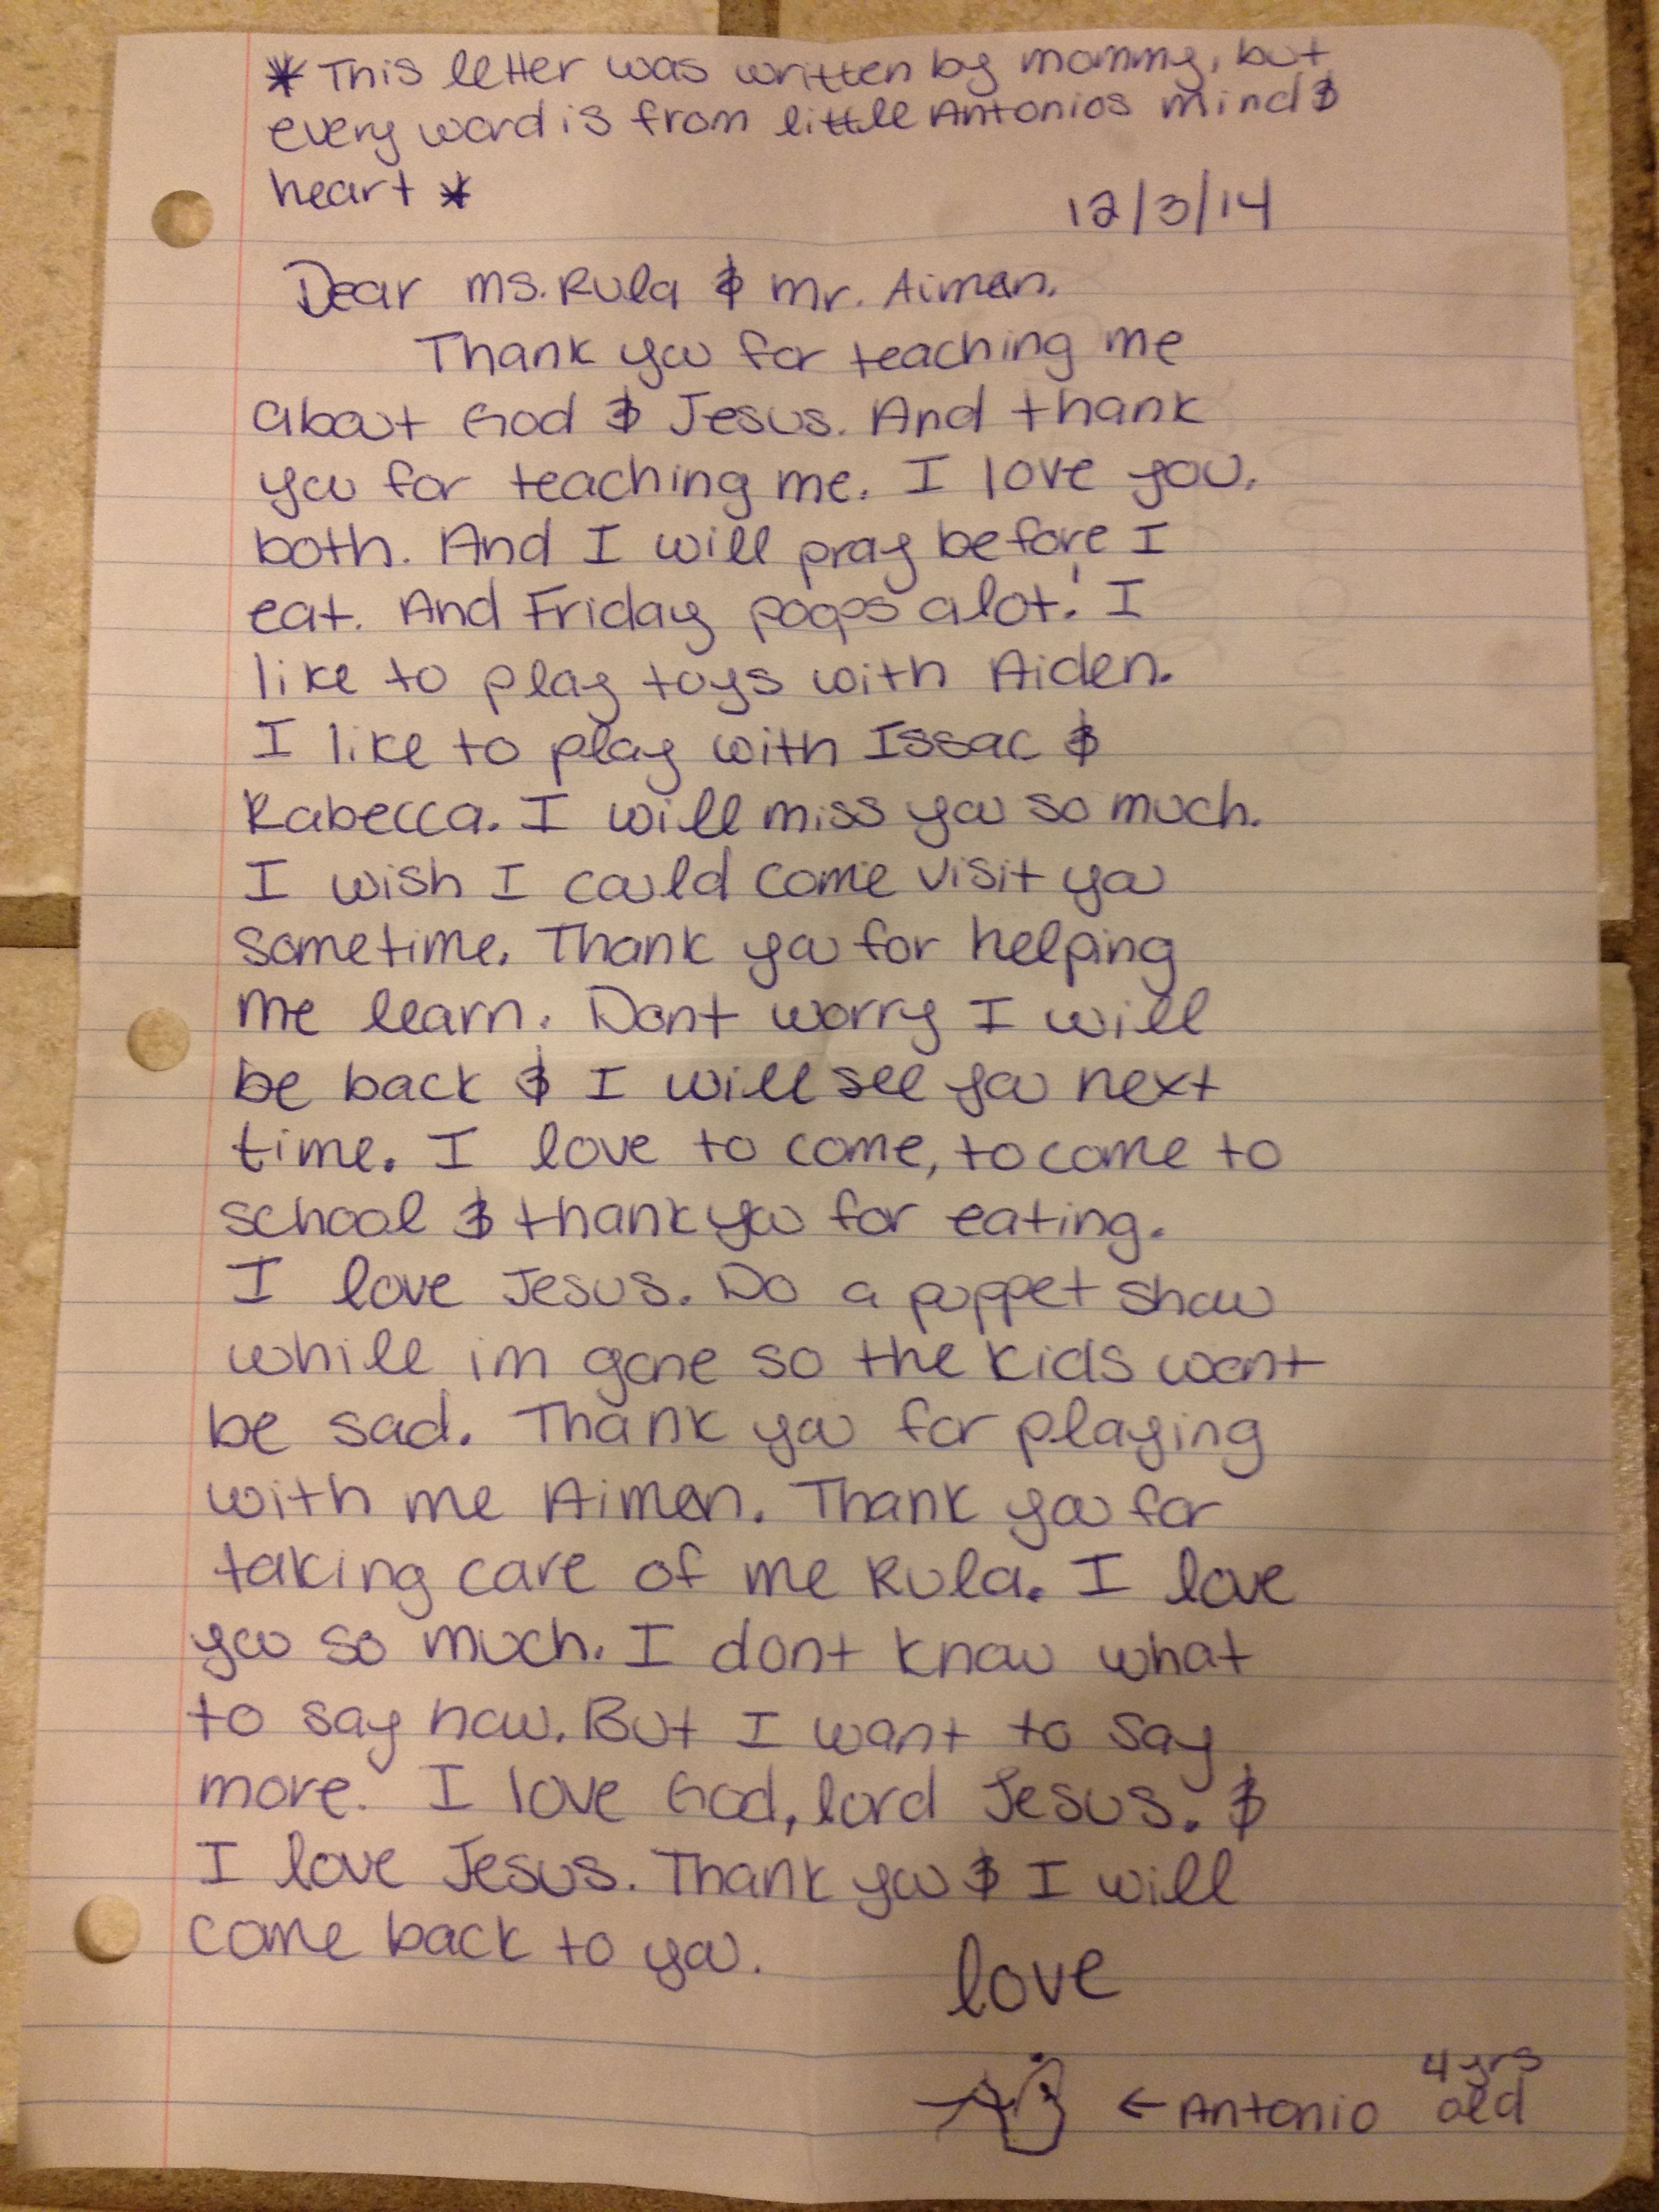 * This letter was written by mommy, but
every word is from little Antonios mind &
heart *
12/3/14
Dear Ms. Rula & Mr. Aiman.
Thank you for teaching me
about God & Jesus. And thank
you for teaching me. I love you.
both. And I will pray before I
eat. And Friday poops alot! I
like to play toys with Aiden.
I like to play with Issac &
Rabecca. I will miss you so much.
I wish I could come visit you
sometime. Thank you for helping
me learn. Dont worry I will
be back & I will see you next
time. I love to come, to come to
school & thank you for eating.
I love Jesus. Do a puppet show
while im gone so the kids wont
be sad. Thank you for playing
with me Aimen. Thank you for
taking care of me Rula. I love
you so much. I dont know what
to say now. But I want to say
more. I love God, lord Jesus. &
I love Jesus. Thank you & I will
come back to you.
love
← Antonio 4 yrs
old